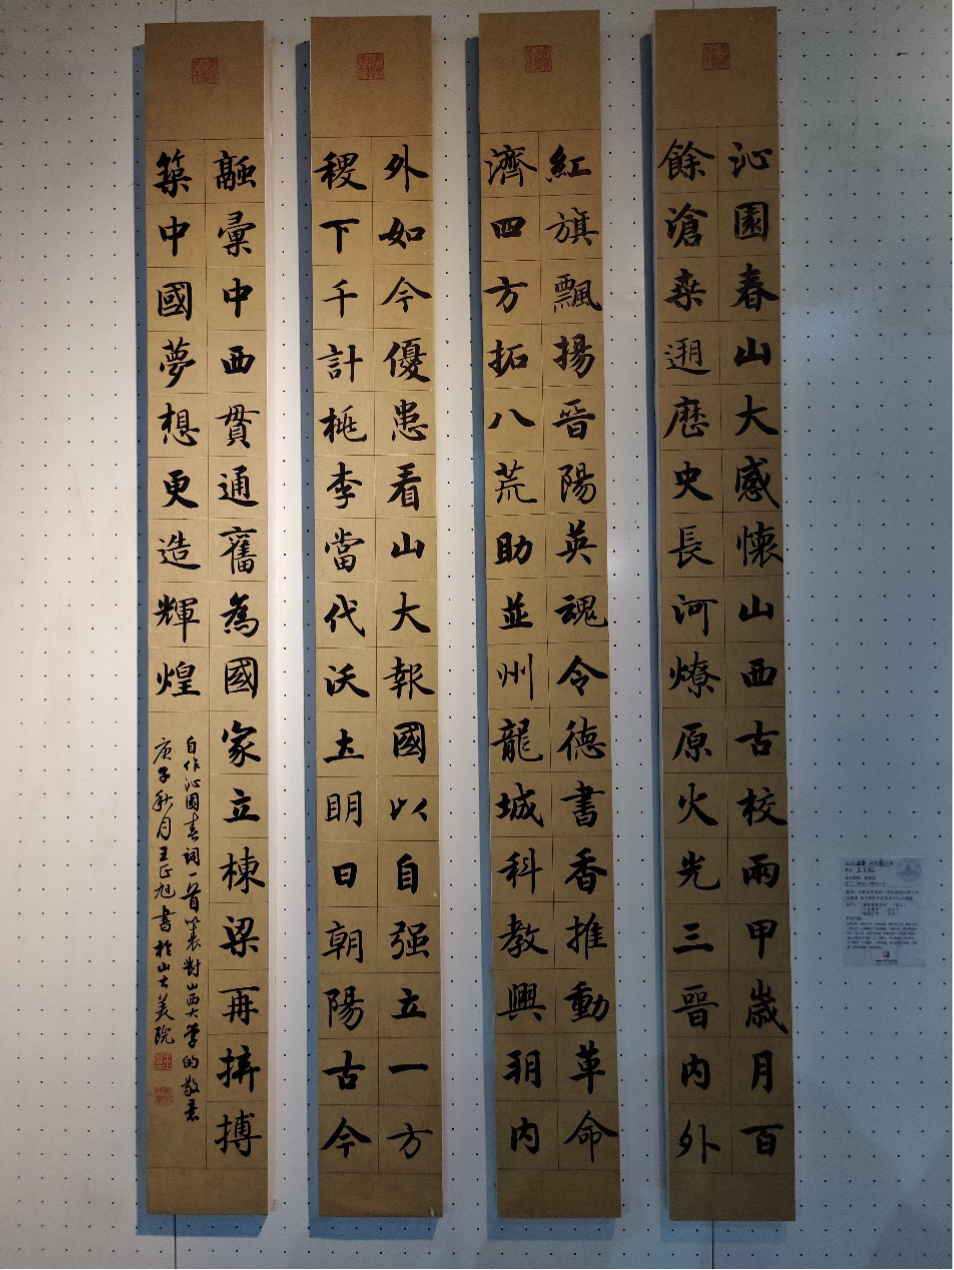 沁園春山大感懷山西古校兩甲歲月百
餘滄桒遡歷史長河燎原火光三晉内外
紅旗飄揚晉陽英魂令德書香推動革命
濟四方拓八荒助並州龍城科教興明内
外如今優患看山大報國以自强立一方
稷下千計桃李當代沃土明日朝陽古今
融彙中西貫通舊為國家立棟梁再拼搏
築中國夢想更造輝煌
自作沁園春詞一首以表對山西大学的敬意
庚子秋月王正旭書於山大美院